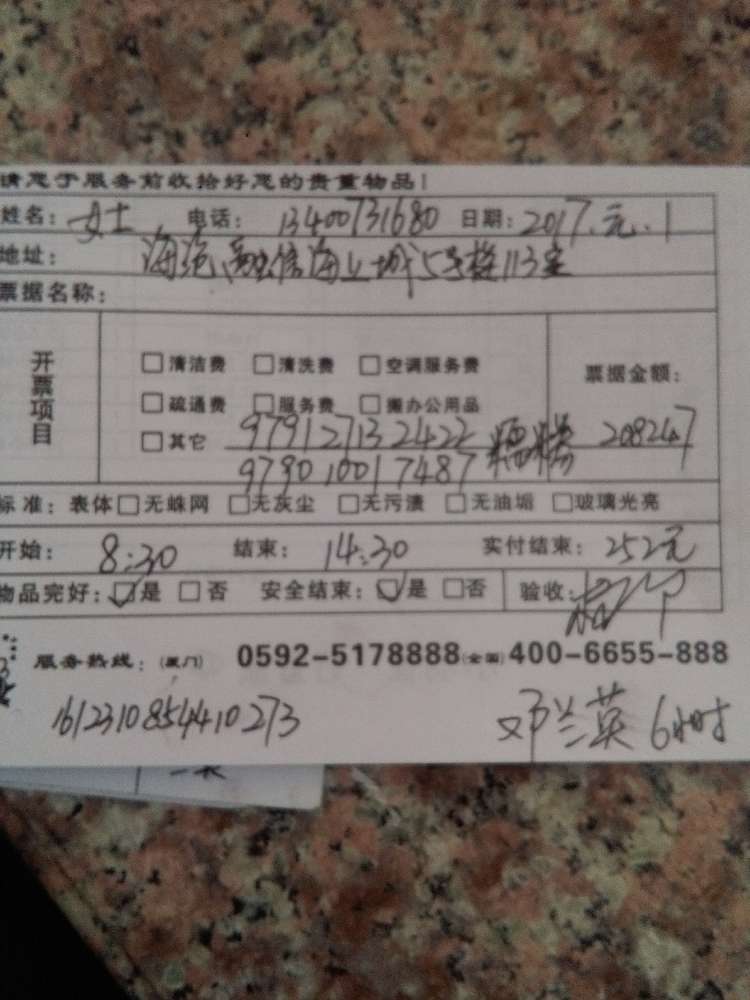 请您于服务前收拾好您的贵重物品!
姓名: 女士 电话: 13400731680 日期: 2017.元.1
地址: 海沧 融信海上城5号楼113室
票据名称:
开票项目
□清洁费 □清洗费 □空调服务费 票据金额:
□疏通费 □服务费 □搬办公用品
□其它 979127132422 2082467
979010017487
标准: 表体□无蛛网 □无灰尘 □无污渍 □无油垢 □玻璃光亮
开始: 8:30 结束: 14:30 实付结束: 252元
物品完好: ☑是 □否 安全结束: ☑是 □否 验收:
服务热线: (厦门) 0592-5178888(全国)400-6655-888
1612310854410273 邓兰英 6小时